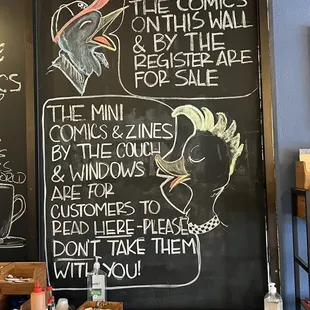 THE COMICS
ON THIS WALL
& BY THE
REGISTER ARE
FOR SALE
THE MINI
COMICS & ZINES
BY THE COUCH
& WINDOWS
ARE FOR
CUSTOMERS TO
READ HERE-PLEASE
DON'T TAKE THEM
WITH YOU!